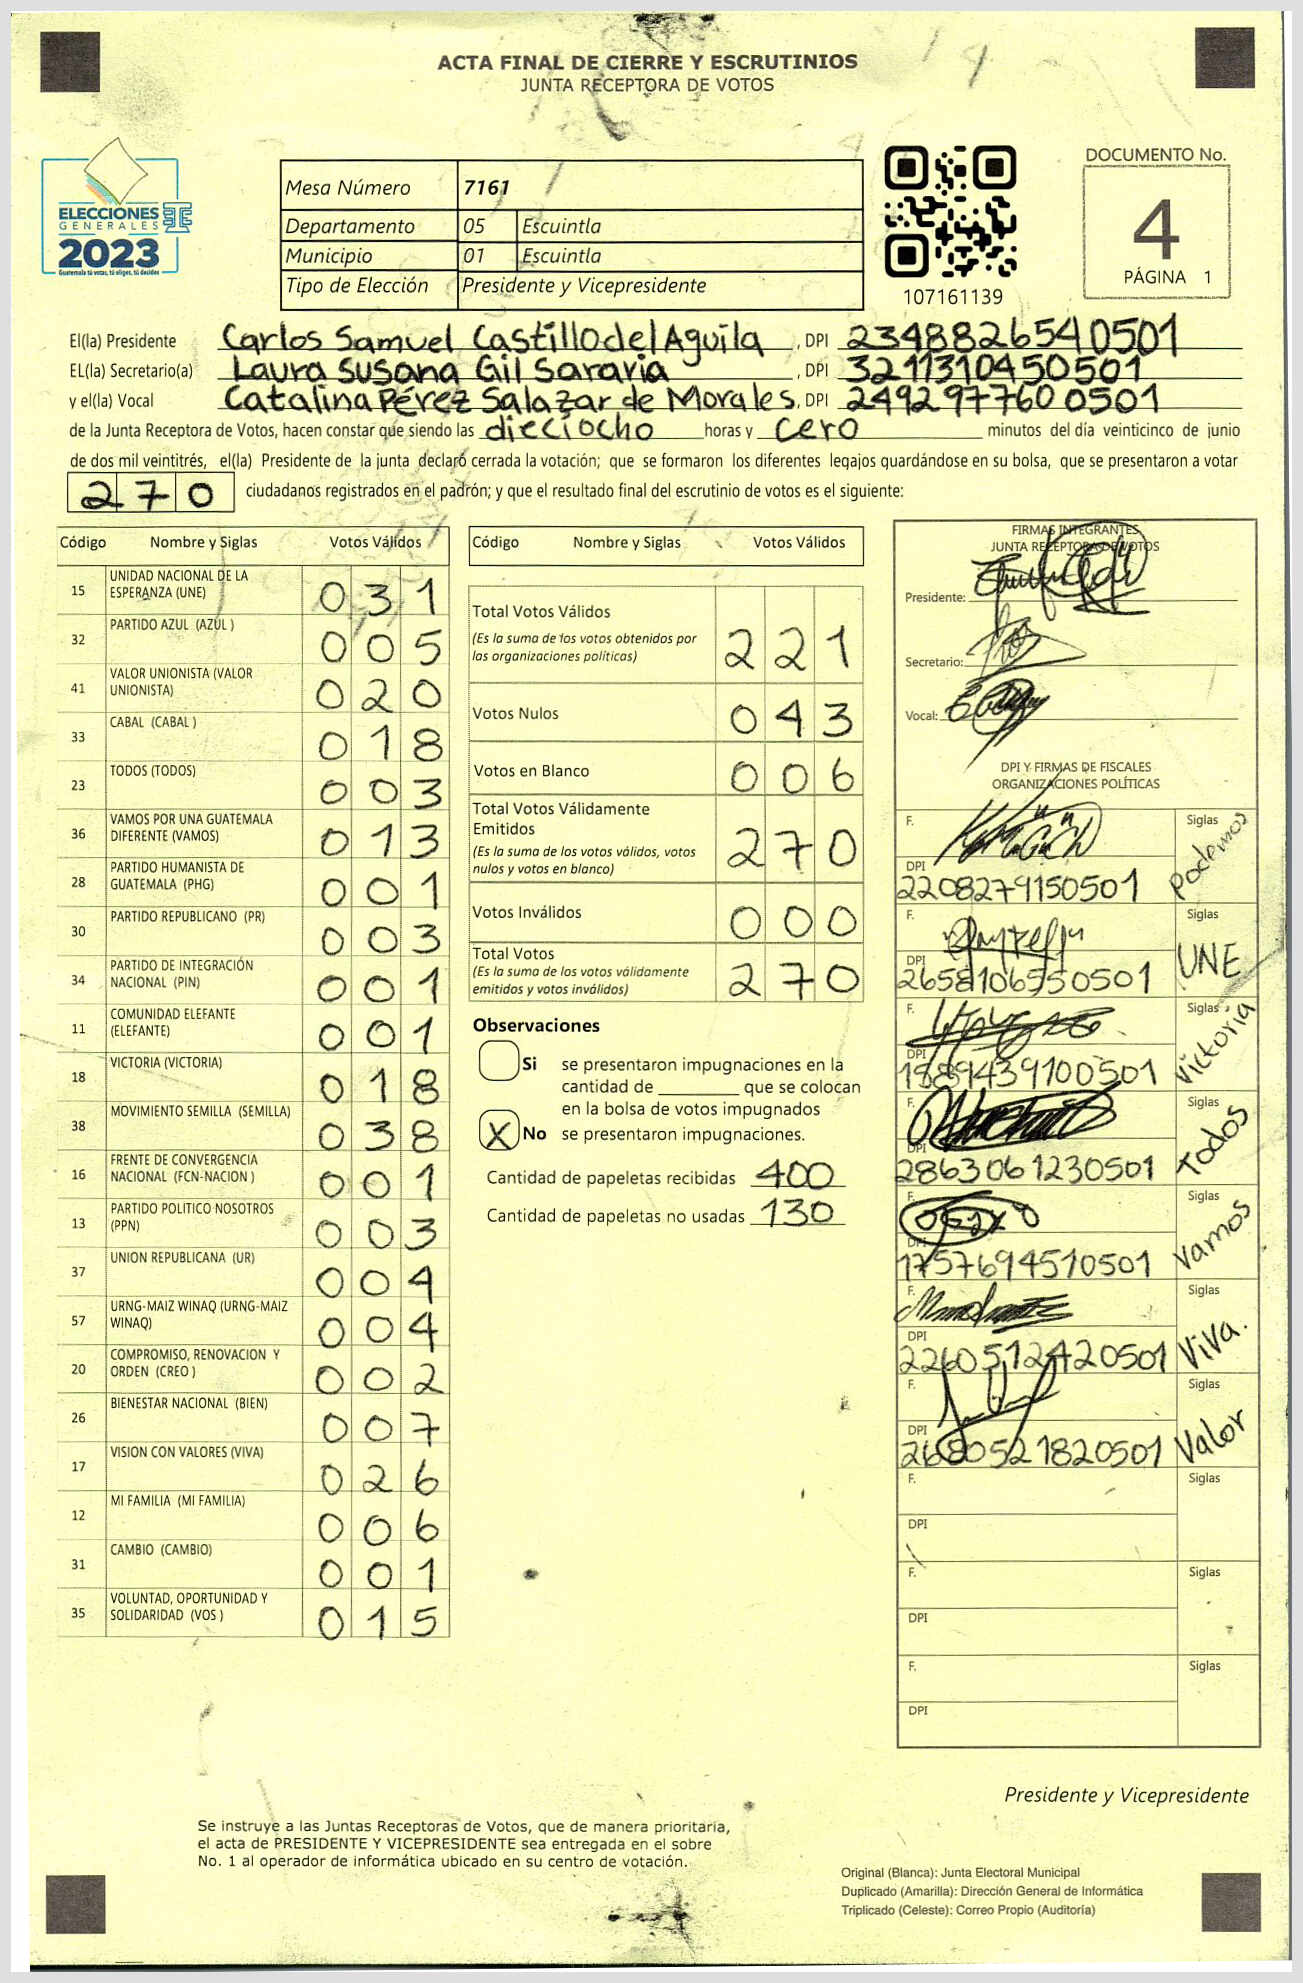 ACTA FINAL DE CIERRE Y ESCRUTINIOS
JUNTA RECEPTORA DE VOTOS
ELECCIONES
GENERALES
2023
Guatemala tú votas, tú eliges, tú decides
Mesa Número 7161
Departamento 05 Escuintla
Municipio 01 Escuintla
Tipo de Elección Presidente y Vicepresidente
107161139
DOCUMENTO No.
4
PÁGINA 1
El(la) Presidente Carlos Samuel Castillo del Aguila, DPI 2348826540501
EL(la) Secretario(a) Laura Susana Gil Saravia, DPI 3211310450501
y el(la) Vocal Catalina Pérez Salazar de Morales, DPI 2492977600501
de la Junta Receptora de Votos, hacen constar que siendo las dieciocho horas y cero minutos del día veinticinco de junio
de dos mil veintitrés, el(la) Presidente de la junta declaró cerrada la votación; que se formaron los diferentes legajos guardándose en su bolsa, que se presentaron a votar
270 ciudadanos registrados en el padrón; y que el resultado final del escrutinio de votos es el siguiente:
Código Nombre y Siglas Votos Válidos
15 UNIDAD NACIONAL DE LA ESPERANZA (UNE) 031
32 PARTIDO AZUL (AZUL ) 005
41 VALOR UNIONISTA (VALOR UNIONISTA) 020
33 CABAL (CABAL ) 018
23 TODOS (TODOS) 003
36 VAMOS POR UNA GUATEMALA DIFERENTE (VAMOS) 013
28 PARTIDO HUMANISTA DE GUATEMALA (PHG) 001
30 PARTIDO REPUBLICANO (PR) 003
34 PARTIDO DE INTEGRACIÓN NACIONAL (PIN) 001
11 COMUNIDAD ELEFANTE (ELEFANTE) 001
18 VICTORIA (VICTORIA) 018
38 MOVIMIENTO SEMILLA (SEMILLA) 038
16 FRENTE DE CONVERGENCIA NACIONAL (FCN-NACION ) 001
13 PARTIDO POLITICO NOSOTROS (PPN) 003
37 UNION REPUBLICANA (UR) 004
57 URNG-MAIZ WINAQ (URNG-MAIZ WINAQ) 004
20 COMPROMISO, RENOVACION Y ORDEN (CREO ) 002
26 BIENESTAR NACIONAL (BIEN) 007
17 VISION CON VALORES (VIVA) 026
12 MI FAMILIA (MI FAMILIA) 006
31 CAMBIO (CAMBIO) 001
35 VOLUNTAD, OPORTUNIDAD Y SOLIDARIDAD (VOS ) 015
Código Nombre y Siglas Votos Válidos
Total Votos Válidos 221
(Es la suma de los votos obtenidos por
las organizaciones políticas)
Votos Nulos 043
Votos en Blanco 006
Total Votos Válidamente
Emitidos 270
(Es la suma de los votos válidos, votos
nulos y votos en blanco)
Votos Inválidos 000
Total Votos 270
(Es la suma de los votos válidamente
emitidos y votos inválidos)
Observaciones
Si se presentaron impugnaciones en la
cantidad de ________ que se colocan
en la bolsa de votos impugnados
X No se presentaron impugnaciones.
Cantidad de papeletas recibidas 400
Cantidad de papeletas no usadas 130
FIRMAS INTEGRANTES
JUNTA RECEPTORA DE VOTOS
Presidente:
Secretario:
Vocal:
DPI Y FIRMAS DE FISCALES
ORGANIZACIONES POLÍTICAS
F. Siglas Podemos
DPI 2208279150501
F. Siglas UNE
DPI 2658106550501
F. Siglas Victoria
DPI 1889439100501
F. Siglas Todos
DPI 2863061230501
F. Siglas Vamos
DPI 1757694510501
F. Siglas ViVa.
DPI 2260512420501
F. Siglas Valor
DPI 2680521820501
F. Siglas
DPI
F. Siglas
DPI
F. Siglas
DPI
Presidente y Vicepresidente
Se instruye a las Juntas Receptoras de Votos, que de manera prioritaria,
el acta de PRESIDENTE Y VICEPRESIDENTE sea entregada en el sobre
No. 1 al operador de informática ubicado en su centro de votación.
Original (Blanca): Junta Electoral Municipal
Duplicado (Amarilla): Dirección General de Informática
Triplicado (Celeste): Correo Propio (Auditoría)